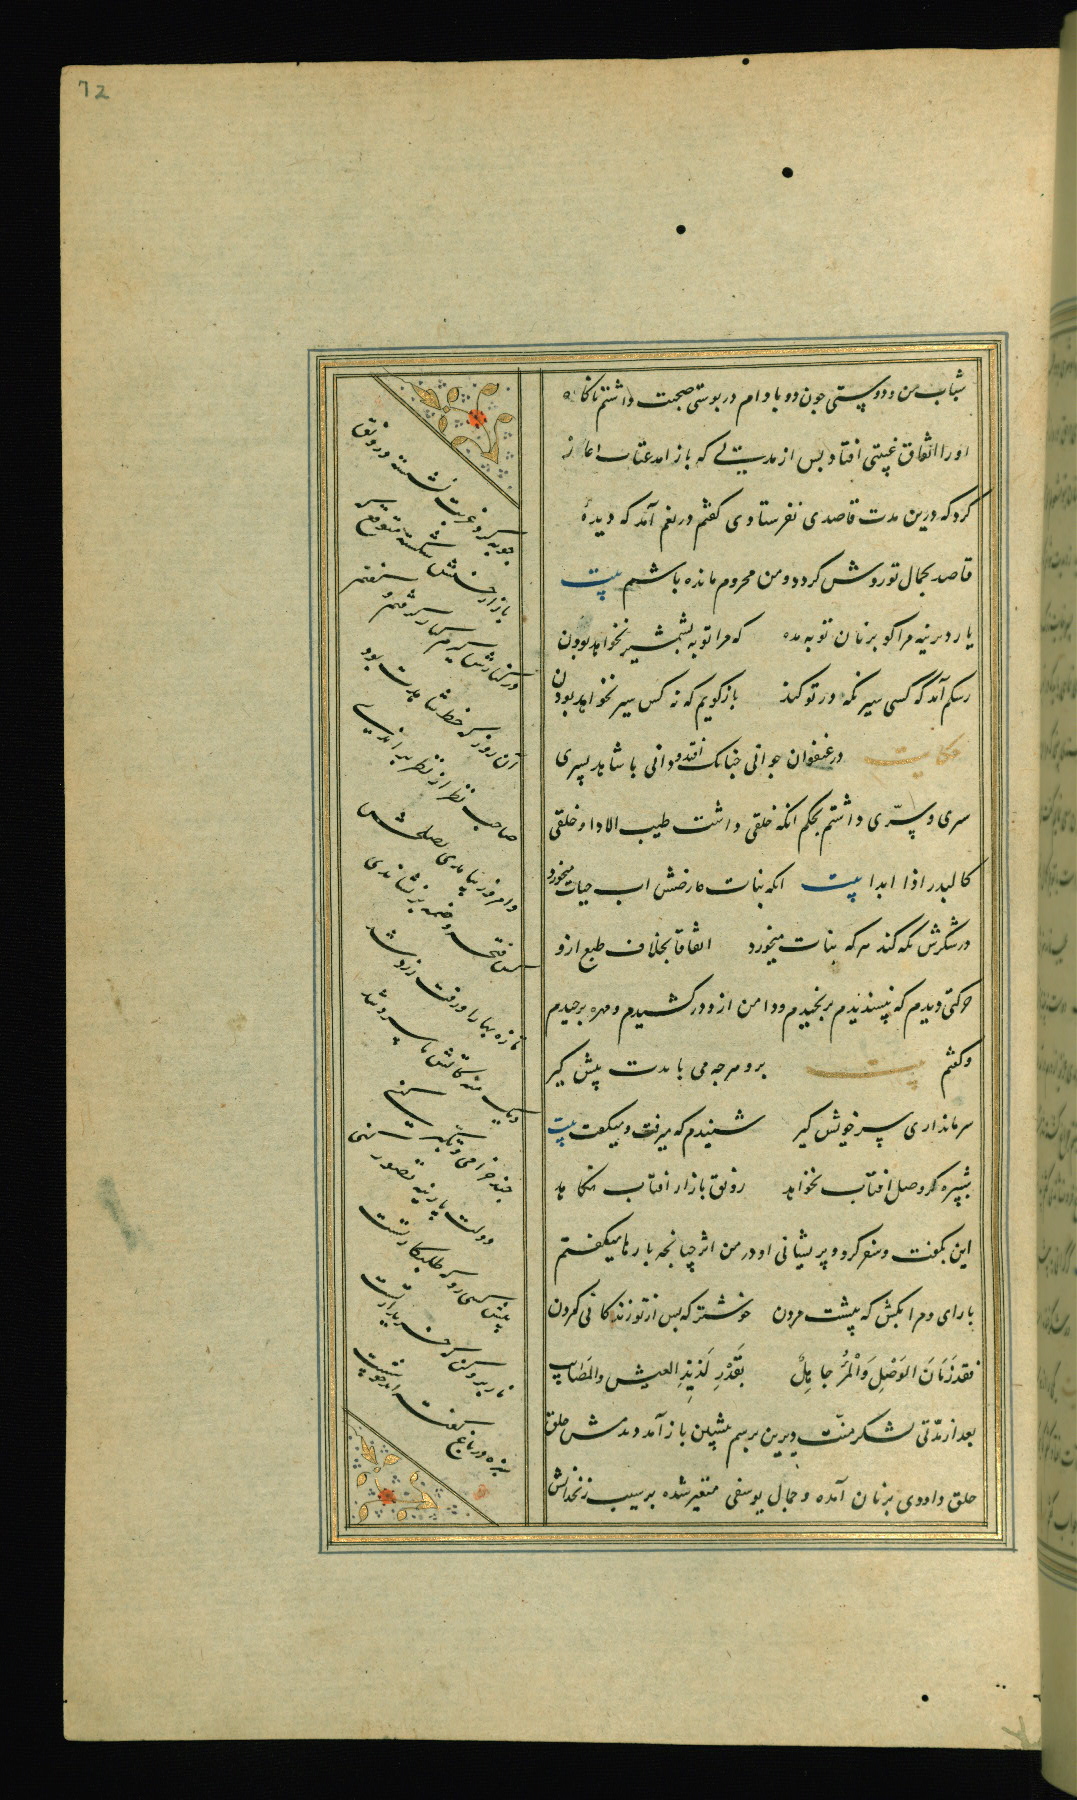 72
شباب من و دوستی چون دو بادام در پوستی صحبت داشتم ناکاه
اورا اتفاق غیبتی افتاد بس از مدتی که باز امد عتاب اغاز
کرد که درین مدت قاصدی نفرستادی کفتم دریغم آمد که دیدهٔ
قاصد بجمال تو روشن کردد و من محروم مانده باشم بیت
یار دیرینه مرا کو بزبان توبه مده که مرا توبه بشمشیر نخواهد بودن
رشکم آمد که کسی سیر نکه در تو کند باز کویم که نه کس سیر نخواهد بودن
حکایت در عنفوان جوانی چنانک افتد و دانی با شاهد پسری
سری و سرّی داشتم بحکم انکه خلقی داشت طیب الادا و خلقی
کالبدر اذا ابدا بیت انکه نبات عارضش اب حیات میخورد
در شکرش نکه کند هر که نبات میخورد اتفاقا بخلاف طبع ازو
حرکتی دیدم که نپسندیدم برنجیدم و دامن ازو درکشیدم و مهره برچیدم
و کفتم بیت برو هرچه می بایدت پیش کیر
سر ما نداری سر خویش کیر شنیدم که میرفت و میکفت بیت
شبپره کر وصل افتاب نخواهد رونق بازار افتاب نکاهد
این بکفت و سفر کرد و پریشانی او در من اثر چنانچه بارها میکفتم
بازای و مرا بکش که پیشت مردن خوشتر که بس از تو زندکانی کردن
فقد زَمَانَ الوَصْلِ وَالْمَرْءُ جاهِلٌ بقَدْرِ لَذیذِ العیش والمَصَایب
بعد از مدّتی بشکر منّت دیرین برسم پیشین باز آمد و بدش حلق
حلق داودی بزیان آمده و جمال یوسفی متغیر شده بر سیب زنخدانش
چو به کرد غربت نشسته و رونق
بازار حسنش شکسته متوقع که
در کنارش کیرم کناره کرفتم و کفتم
آن روز که خط شاهدت بود
صاحب نظر از نظر براندی
و امروز بیامدی بصلحش
کش فتحه و ضمه بر نشاندی
تازه بهارا ورقت زرد شد
دیک منه کاتش ما سرد شد
چند خرامی و تکبر کنی
دولت پارینه تصور کنی
پیش کسی رو که طلبکار تست
ناز برو کن که خریدار تست
سبزه در باغ کفته اند خوشست